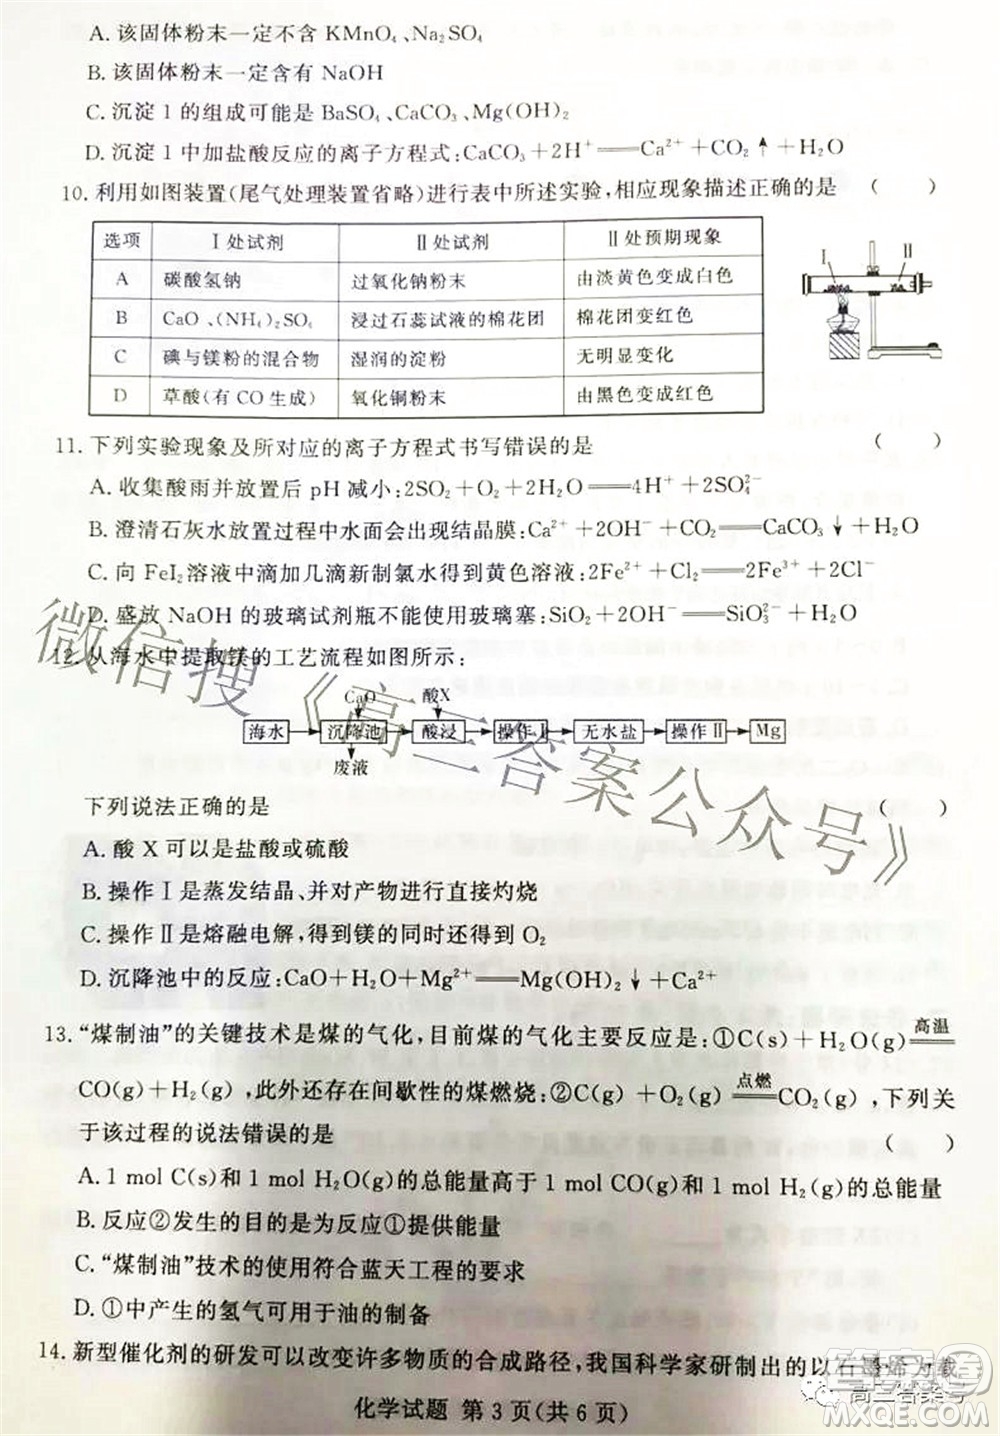 A. 该固体粉末一定不含 KMnO₄、Na₂SO₄
B. 该固体粉末一定含有 NaOH
C. 沉淀 1 的组成可能是 BaSO₄、CaCO₃、Mg(OH)₂
D. 沉淀 1 中加盐酸反应的离子方程式:CaCO₃+2H⁺══Ca²⁺+CO₂↑+H₂O
10. 利用如图装置(尾气处理装置省略)进行表中所述实验,相应现象描述正确的是 (　　)
选项 Ⅰ处试剂 Ⅱ处试剂 Ⅱ处预期现象
A 碳酸氢钠 过氧化钠粉末 由淡黄色变成白色
B CaO、(NH₄)₂SO₄ 浸过石蕊试液的棉花团 棉花团变红色
C 碘与镁粉的混合物 湿润的淀粉 无明显变化
D 草酸(有 CO 生成) 氧化铜粉末 由黑色变成红色
Ⅰ Ⅱ
11. 下列实验现象及所对应的离子方程式书写错误的是 (　　)
A. 收集酸雨并放置后 pH 减小:2SO₂+O₂+2H₂O══4H⁺+2SO₄²⁻
B. 澄清石灰水放置过程中水面会出现结晶膜:Ca²⁺+2OH⁻+CO₂══CaCO₃↓+H₂O
C. 向 FeI₂ 溶液中滴加几滴新制氯水得到黄色溶液:2Fe²⁺+Cl₂══2Fe³⁺+2Cl⁻
D. 盛放 NaOH 的玻璃试剂瓶不能使用玻璃塞:SiO₂+2OH⁻══SiO₃²⁻+H₂O
12. 从海水中提取镁的工艺流程如图所示:
CaO 酸X
海水 沉降池 酸浸 操作Ⅰ 无水盐 操作Ⅱ Mg
废液
下列说法正确的是 (　　)
A. 酸 X 可以是盐酸或硫酸
B. 操作Ⅰ是蒸发结晶、并对产物进行直接灼烧
C. 操作Ⅱ是熔融电解,得到镁的同时还得到 O₂
D. 沉降池中的反应:CaO+H₂O+Mg²⁺══Mg(OH)₂↓+Ca²⁺
13. “煤制油”的关键技术是煤的气化,目前煤的气化主要反应是:①C(s)+H₂O(g)══高温
CO(g)+H₂(g),此外还存在间歇性的煤燃烧:②C(g)+O₂(g)══点燃 CO₂(g),下列关
于该过程的说法错误的是 (　　)
A. 1 mol C(s)和 1 mol H₂O(g)的总能量高于 1 mol CO(g)和 1 mol H₂(g)的总能量
B. 反应②发生的目的是为反应①提供能量
C. “煤制油”技术的使用符合蓝天工程的要求
D. ①中产生的氢气可用于油的制备
14. 新型催化剂的研发可以改变许多物质的合成路径,我国科学家研制出的以石墨烯为载
化学试题 第 3 页(共 6 页)
微信搜《高三答案公众号》
高三答案号
答案圈
MXQE.COM